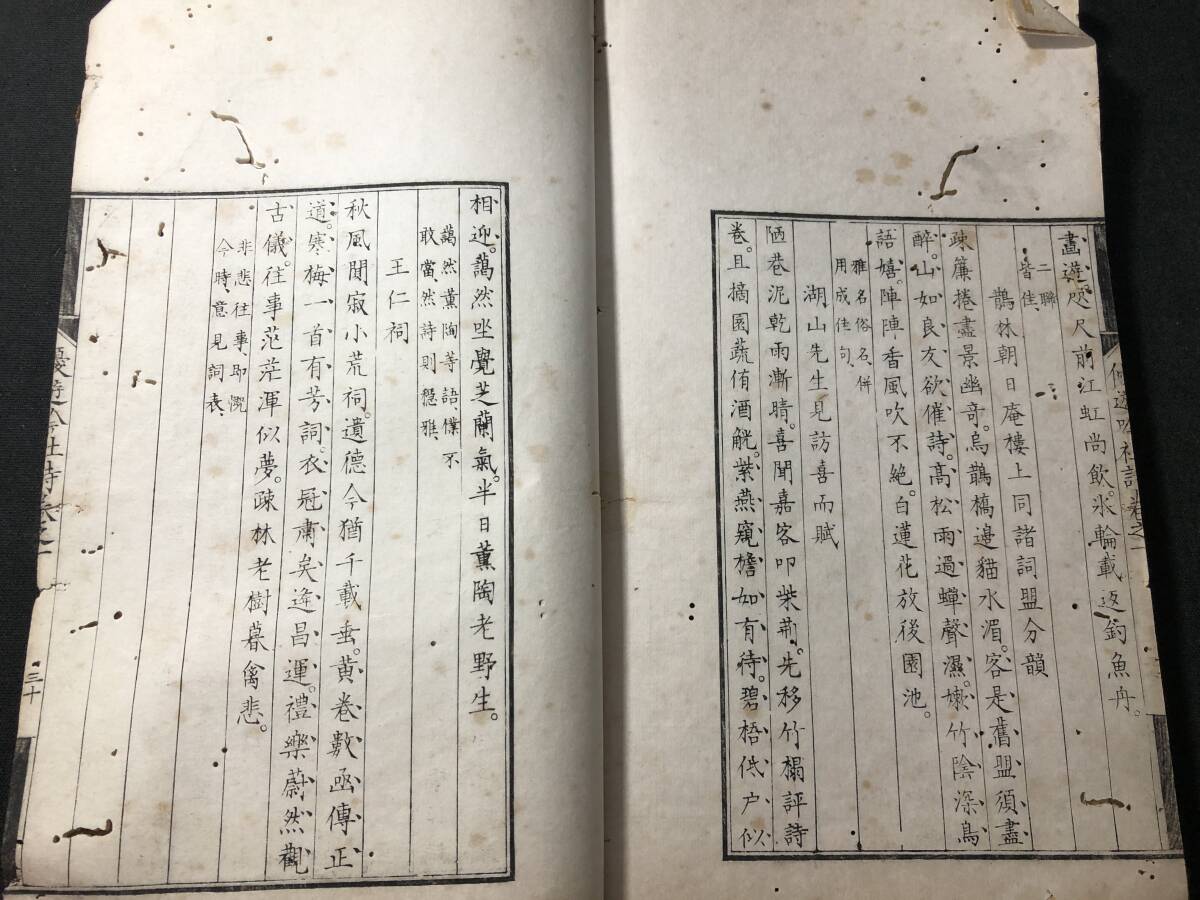 畫遊咫尺前江虹尚飲。氷輪載返釣魚舟。
二聯
皆佳、
鵲林朝日庵樓上同諸詞盟分韻
疎簾捲盡景幽奇。烏鵲橋邊貓水湄。客是舊盟須盡
醉。山如良友欲催詩。高松雨過蟬聲濕。嫩竹陰深鳥
語嬉。陣陣香風吹不絕。白蓮花放後園池。
雅名俗名、併
用成佳句、
湖山先生見訪喜而賦
陋巷泥乾雨漸晴。喜聞嘉客叩柴荊。先移竹榻評詩
卷。且摘園蔬侑酒觥。紫燕窺檐如有待。碧梧低户似
相迎。藹然坐覺芝蘭氣。半日薰陶老野生。
藹然薰陶等語、僕不
敢當、然詩則穩雅、
王仁祠
秋風閴寂小荒祠。遺德今猶千載垂。黄卷數函傳正
道。寒梅一首有芳詞。衣冠肅矣逢昌運。禮樂蔚然觀
古儀。往事茫茫渾似夢。疎林老樹暮禽悲。
非悲往事、即慨
今時、意見詞表、
三十